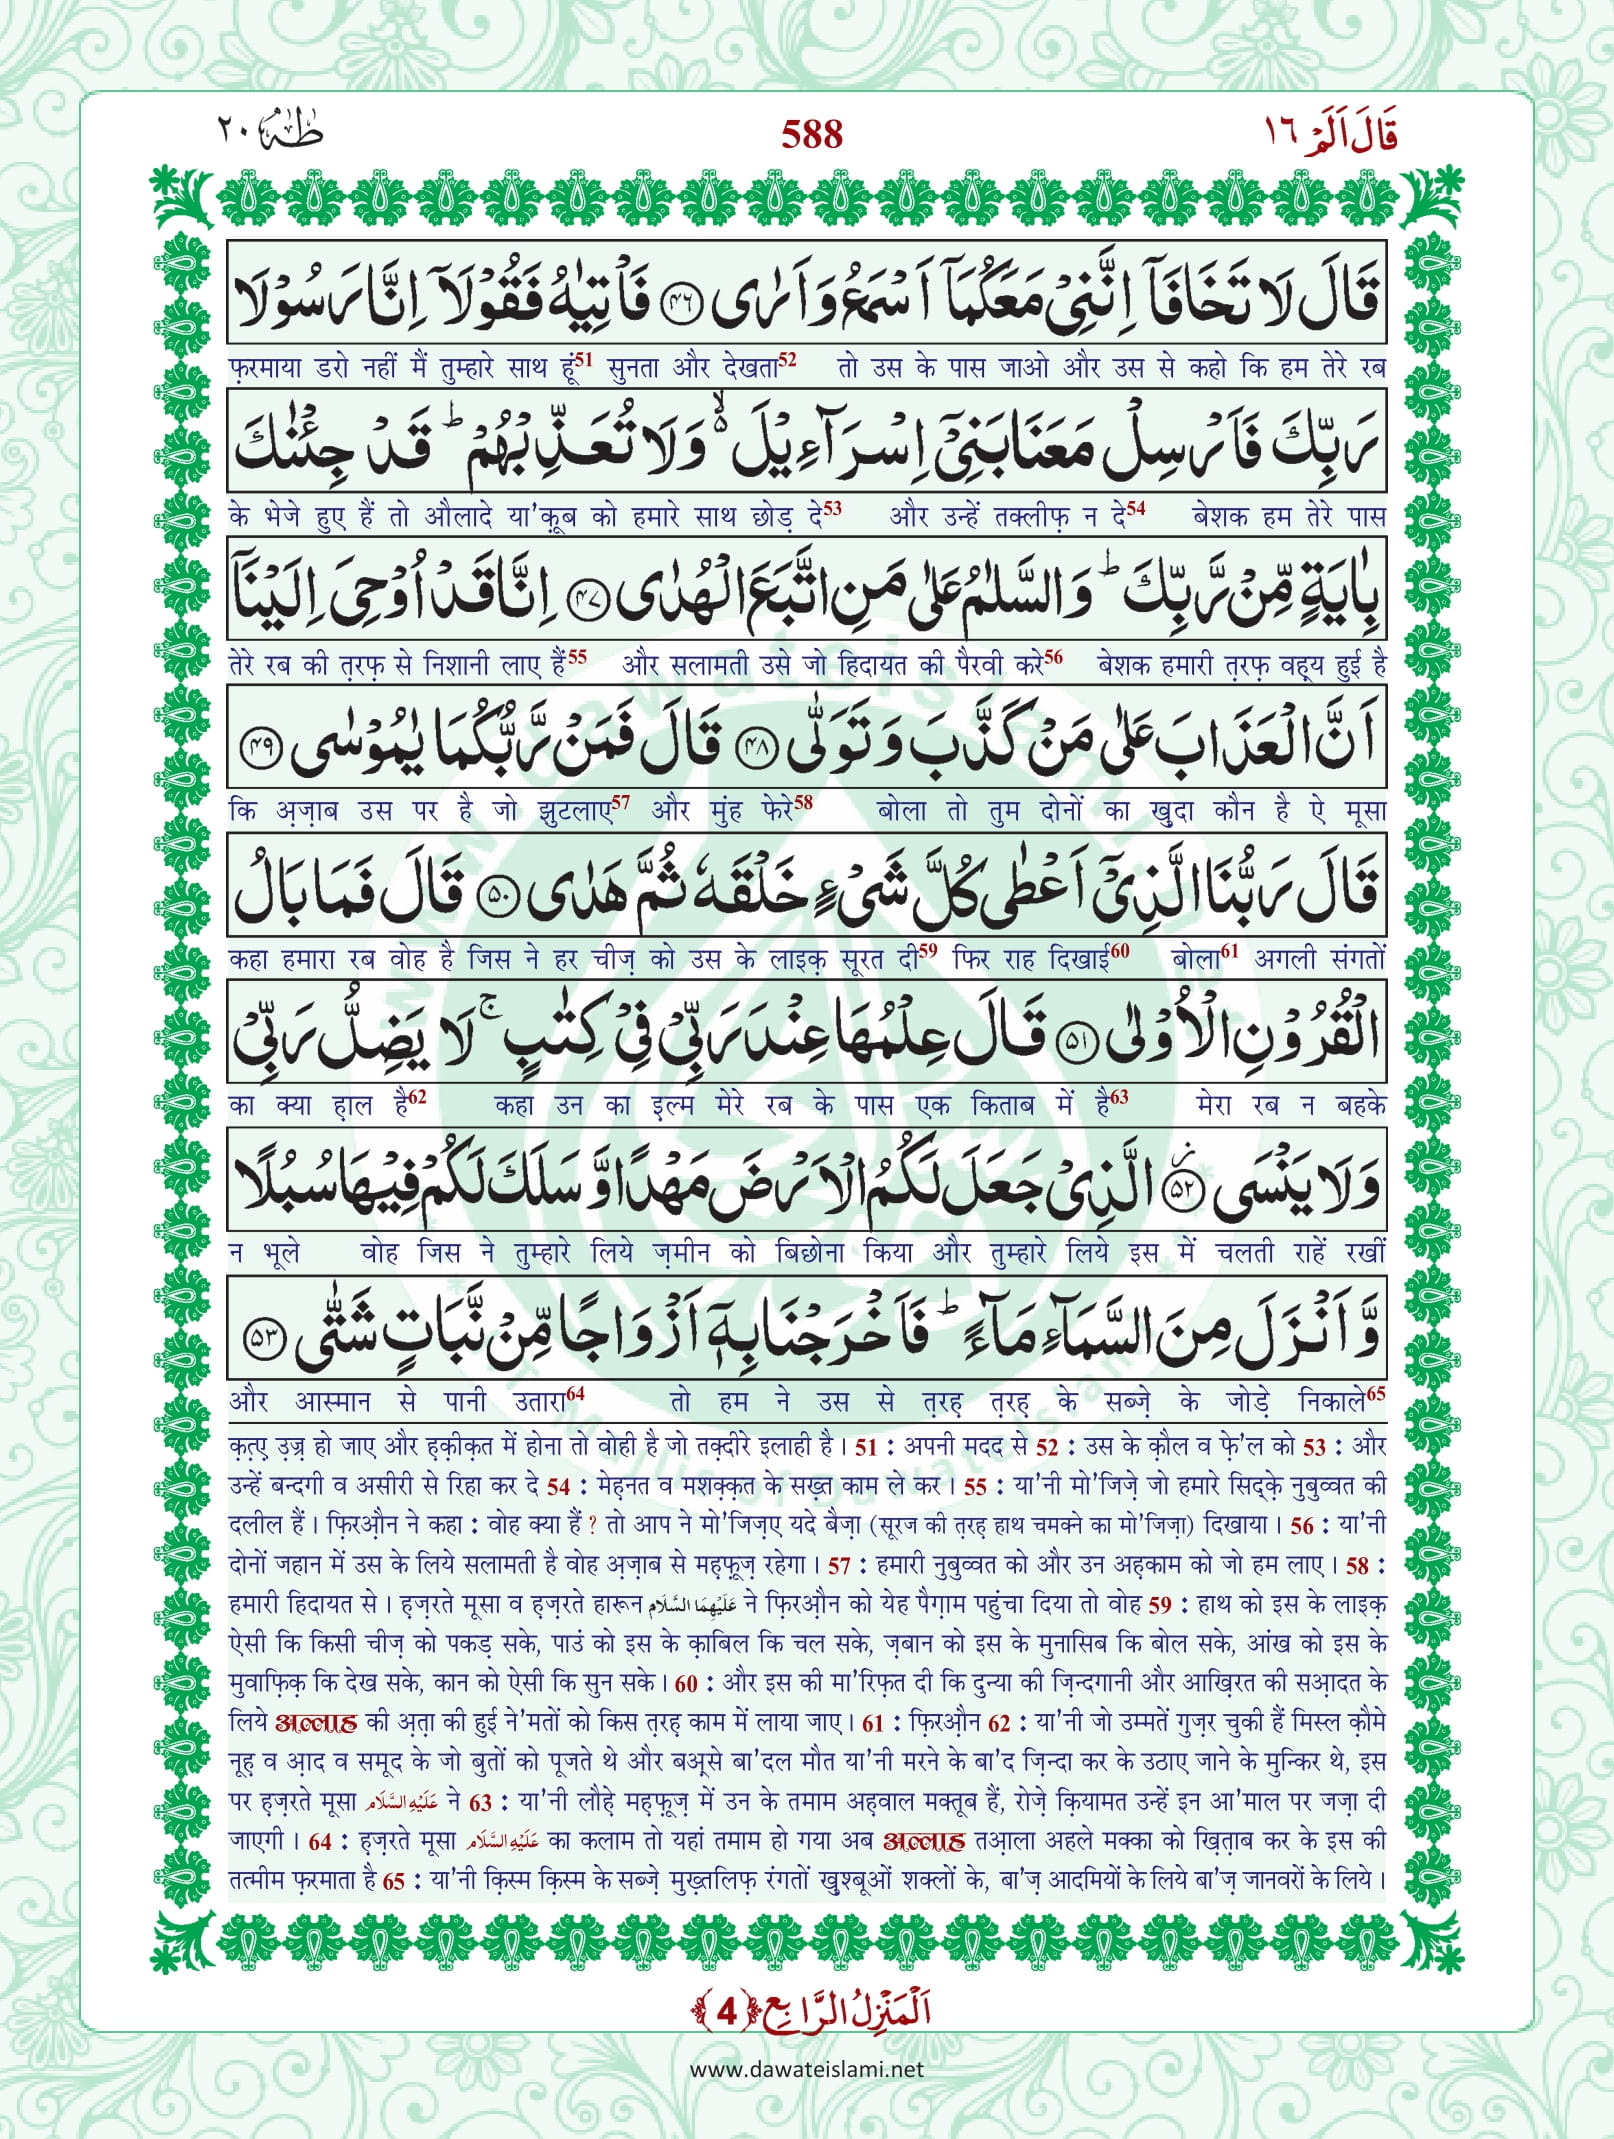 طٰهٰ ٢٠
588
قَالَ اَلَمْ ١٦
قَالَ لَا تَخَافَاۤ اِنَّنِیْ مَعَكُمَاۤ اَسْمَعُ وَ اَرٰى ﴿۴۶﴾ فَاْتِیٰهُ فَقُوْلَاۤ اِنَّا رَسُوْلَا
फ़रमाया डरो नहीं मैं तुम्हारे साथ हूं51 सुनता और देखता52 तो उस के पास जाओ और उस से कहो कि हम तेरे रब
رَبِّكَ فَاَرْسِلْ مَعَنَا بَنِیْۤ اِسْرَآءِیْلَ ۙ۬ وَ لَا تُعَذِّبْهُمْ ؕ قَدْ جِئْنٰكَ
के भेजे हुए हैं तो औलादे या'क़ूब को हमारे साथ छोड़ दे53 और उन्हें तक्लीफ़ न दे54 बेशक हम तेरे पास
بِاٰیَةٍ مِّنْ رَّبِّكَ ؕ وَ السَّلٰمُ عَلٰى مَنِ اتَّبَعَ الْهُدٰى ﴿۴۷﴾ اِنَّا قَدْ اُوْحِیَ اِلَیْنَاۤ
तेरे रब की त़रफ़ से निशानी लाए हैं55 और सलामती उसे जो हिदायत की पैरवी करे56 बेशक हमारी त़रफ़ वह़्य हुई है
اَنَّ الْعَذَابَ عَلٰى مَنْ كَذَّبَ وَ تَوَلّٰى ﴿۴۸﴾ قَالَ فَمَنْ رَّبُّكُمَا یٰمُوْسٰى ﴿۴۹﴾
कि अ़ज़ाब उस पर है जो झुटलाए57 और मुंह फेरे58 बोला तो तुम दोनों का ख़ुदा कौन है ऐ मूसा
قَالَ رَبُّنَا الَّذِیْۤ اَعْطٰى كُلَّ شَیْءٍ خَلْقَهٗ ثُمَّ هَدٰى ﴿۵۰﴾ قَالَ فَمَا بَالُ
कहा हमारा रब वोह है जिस ने हर चीज़ को उस के लाइक़ सूरत दी59 फिर राह दिखाई60 बोला61 अगली संगतों
الْقُرُوْنِ الْاُوْلٰى ﴿۵۱﴾ قَالَ عِلْمُهَا عِنْدَ رَبِّیْ فِیْ كِتٰبٍ ۚ لَا یَضِلُّ رَبِّیْ
का क्या ह़ाल है62 कहा उन का इ़ल्म मेरे रब के पास एक किताब में है63 मेरा रब न बहके
وَ لَا یَنْسَى ﴿۵۲﴾ الَّذِیْ جَعَلَ لَكُمُ الْاَرْضَ مَهْدًا وَّ سَلَكَ لَكُمْ فِیْهَا سُبُلًا
न भूले वोह जिस ने तुम्हारे लिये ज़मीन को बिछोना किया और तुम्हारे लिये इस में चलती राहें रखीं
وَّ اَنْزَلَ مِنَ السَّمَآءِ مَآءً ؕ فَاَخْرَجْنَا بِهٖۤ اَزْوَاجًا مِّنْ نَّبَاتٍ شَتّٰى ﴿۵۳﴾
और आस्मान से पानी उतारा64 तो हम ने उस से त़रह़ त़रह़ के सब्ज़े के जोड़े निकाले65
क़त़्ए़ उ़ज़्र हो जाए और ह़क़ीक़त में होना तो वोही है जो तक़्दीरे इलाही है। 51 : अपनी मदद से 52 : उस के क़ौल व फ़े'ल को 53 : और
उन्हें बन्दगी व असीरी से रिहा कर दे 54 : मेह़नत व मशक़्क़त के सख़्त काम ले कर। 55 : या'नी मो'जिज़े जो हमारे सिद्क़े नुबुव्वत की
दलील हैं। फ़िरऔ़न ने कहा : वोह क्या हैं ? तो आप ने मो'जिज़ए यदे बैज़ा (सूरज की त़रह़ हाथ चमक्ने का मो'जिज़ा) दिखाया। 56 : या'नी
दोनों जहान में उस के लिये सलामती है वोह अ़ज़ाब से मह़फ़ूज़ रहेगा। 57 : हमारी नुबुव्वत को और उन अह़काम को जो हम लाए। 58 :
हमारी हिदायत से। ह़ज़रते मूसा व ह़ज़रते हारून عَلَيْهِمَا السَّلَام ने फ़िरऔ़न को येह पैग़ाम पहुंचा दिया तो वोह 59 : हाथ को इस के लाइक़
ऐसी कि किसी चीज़ को पकड़ सके, पाउं को इस के क़ाबिल कि चल सके, ज़बान को इस के मुनासिब कि बोल सके, आंख को इस के
मुवाफ़िक़ कि देख सके, कान को ऐसी कि सुन सके। 60 : और इस की मा'रिफ़त दी कि दुन्या की ज़िन्दगानी और आख़िरत की सआ़दत के
लिये अल्लाह की अ़त़ा की हुई ने'मतों को किस त़रह़ काम में लाया जाए। 61 : फ़िरऔ़न 62 : या'नी जो उम्मतें गुज़र चुकी हैं मिस्ल क़ौमे
नूह़ व आ़द व समूद के जो बुतों को पूजते थे और बअ़्से बा'दल मौत या'नी मरने के बा'द ज़िन्दा कर के उठाए जाने के मुन्किर थे, इस
पर ह़ज़रते मूसा عَلَيْهِ السَّلَام ने 63 : या'नी लौहे मह़फ़ूज़ में उन के तमाम अह़वाल मक्तूब हैं, रोज़े क़ियामत उन्हें इन आ'माल पर जज़ा दी
जाएगी। 64 : ह़ज़रते मूसा عَلَيْهِ السَّلَام का कलाम तो यहां तमाम हो गया अब अल्लाह तआ़ला अहले मक्का को ख़ित़ाब कर के इस की
तत्मीम फ़रमाता है 65 : या'नी क़िस्म क़िस्म के सब्ज़े मुख़्तलिफ़ रंगतों ख़ुश्बूओं शक्लों के, बा'ज़ आदमियों के लिये बा'ज़ जानवरों के लिये।
اَلْمَنْزِلُ الرَّابِع ﴿4﴾
www.dawateislami.net